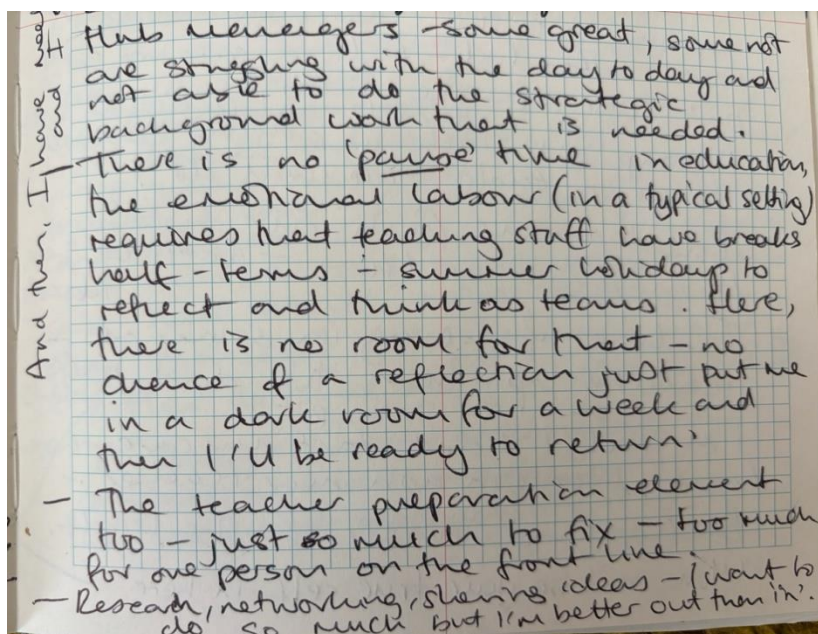 Hub managers - some great, some not
are struggling with the day to day and
not able to do the strategic
background work that is needed.
- There is no 'pause' time in education,
the emotional labour (in a typical setting)
requires that teaching staff have breaks
half-terms - summer holidays to
reflect and think as teams. Here,
there is no room for that - no
chance of a reflection just put me
in a dark room for a week and
then I'll be ready to return'
- The teacher preparation element
too - just so much to fix - too much
for one person on the front line.
- Research, networking, sharing ideas - I want to
do so much but I'm better out than in'.
And then, I have
and